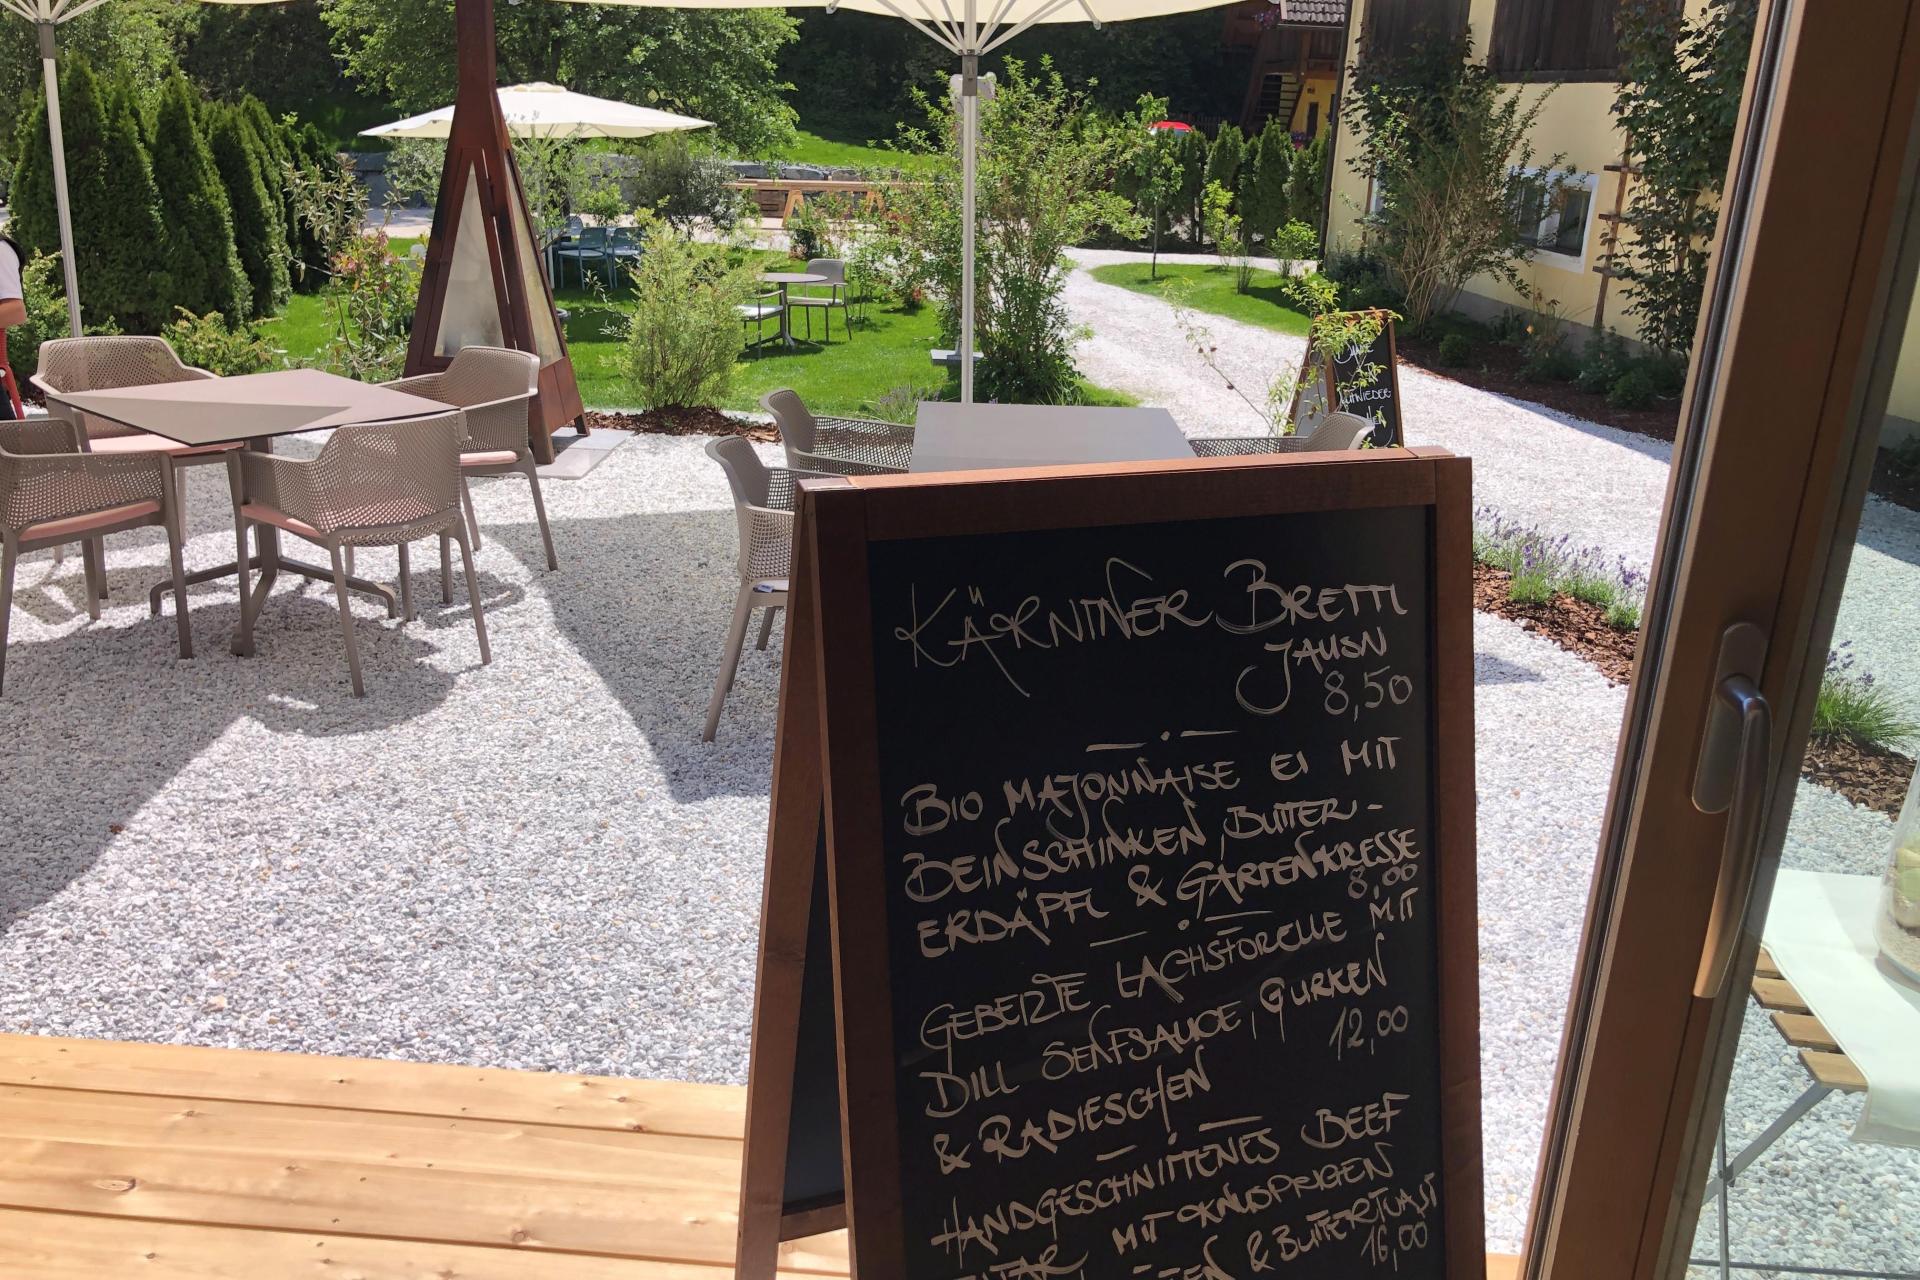 KÄRNTNER BRETTL
JAUSN
8,50
BIO MAJONNAISE EI MIT
BEINSCHINKEN, BUTTER-
ERDÄPFL & GARTENKRESSE
8,00
GEBEIZTE LACHSFORELLE MIT
DILL SENFSAUCE, GURKEN
& RADIESCHEN
12,00
HANDGESCHNITTENES BEEF
MIT KNUSPRIGEN
& BUTTERTOAST
16,00